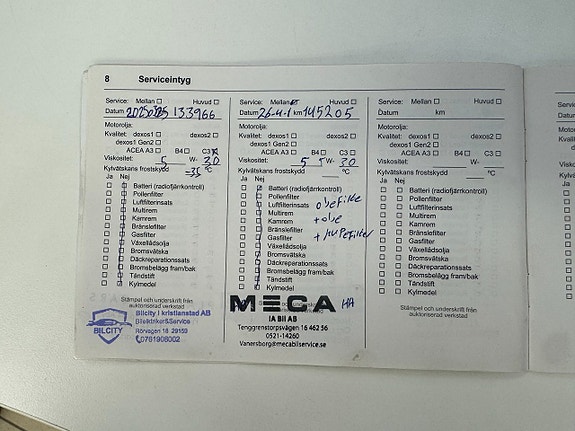 8 Serviceintyg
Service: Mellan Huvud
Datum 133966
Motorolja:
Kvalitet: dexos1 dexos2
dexos1 Gen2
ACEA A3 B4 C3
Viskositet: 5 W- 30
Kylvätskans frostskydd -35 °C
Ja Nej
Batteri (radiofjärrkontroll)
Pollenfilter
Luftfilterinsats
Multirem
Kamrem
Bränslefilter
Gasfilter
Växellådsolja
Bromsvätska
Däckreparationssats
Bromsbelägg fram/bak
Tändstift
Kylmedel
Stämpel och underskrift från
auktoriserad verkstad
BILCITY
Bilcity i kristianstad AB
Bilelektriker&Service
Rörvägen 18 29159
0761908002
Service: Mellan Huvud
Datum 26-4-1 km 145205
Motorolja:
Kvalitet: dexos1 dexos2
dexos1 Gen2
ACEA A3 B4 C3
Viskositet: 5 W- 30
Kylvätskans frostskydd °C
Ja Nej
Batteri (radiofjärrkontroll)
Pollenfilter
Luftfilterinsats
Multirem
Kamrem
Bränslefilter
Gasfilter
Växellådsolja
Bromsvätska
Däckreparationssats
Bromsbelägg fram/bak
Tändstift
Kylmedel
MECA
IA Bil AB
Tenggrenstorpsvägen 16 462 56
0521-14260
Vanersborg@mecabilservice.se
Service: Mellan Huvud
Datum km
Motorolja:
Kvalitet: dexos1 dexos2
dexos1 Gen2
ACEA A3 B4 C3
Viskositet: W-
Kylvätskans frostskydd °C
Ja Nej
Batteri (radiofjärrkontroll)
Pollenfilter
Luftfilterinsats
Multirem
Kamrem
Bränslefilter
Gasfilter
Växellådsolja
Bromsvätska
Däckreparationssats
Bromsbelägg fram/bak
Tändstift
Kylmedel
Stämpel och underskrift från
auktoriserad verkstad